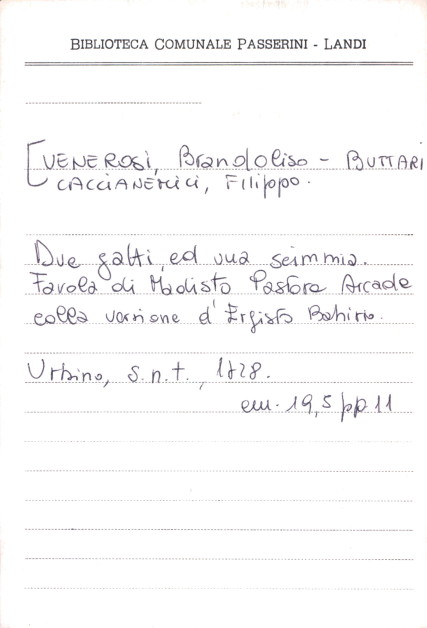 BIBLIOTECA COMUNALE PASSERINI - LANDI
[VENEROSI, Brandoliso - BUTTARI
CACCIANEMICI, Filippo.
Due gatti, ed una scimmia.
Favola di Madisto Pastore Arcade
colla versione d'Ergisto Batirio.
Urbino, s.n.t., 1828.
cm. 19,5 pp 11